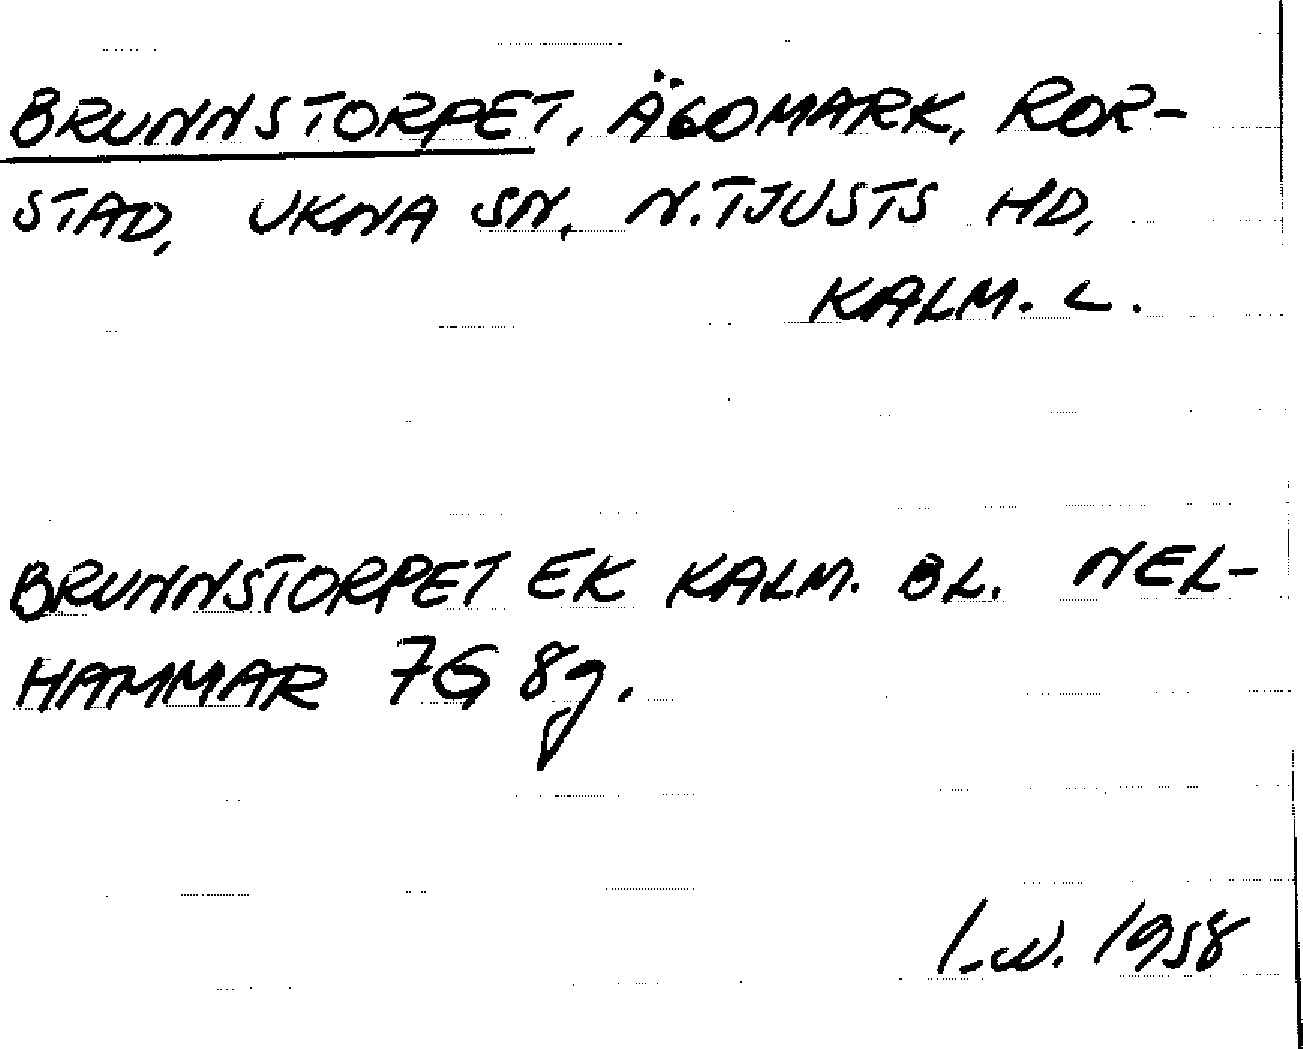 BRUNNSTORPET, ÄGOMARK, ROR-
STAD, UKNA SN, N. TJUSTS HD,
KALM. L.
BRUNNSTORPET EK KALM. BL. NEL-
HAMMAR 7G 8g.
1958